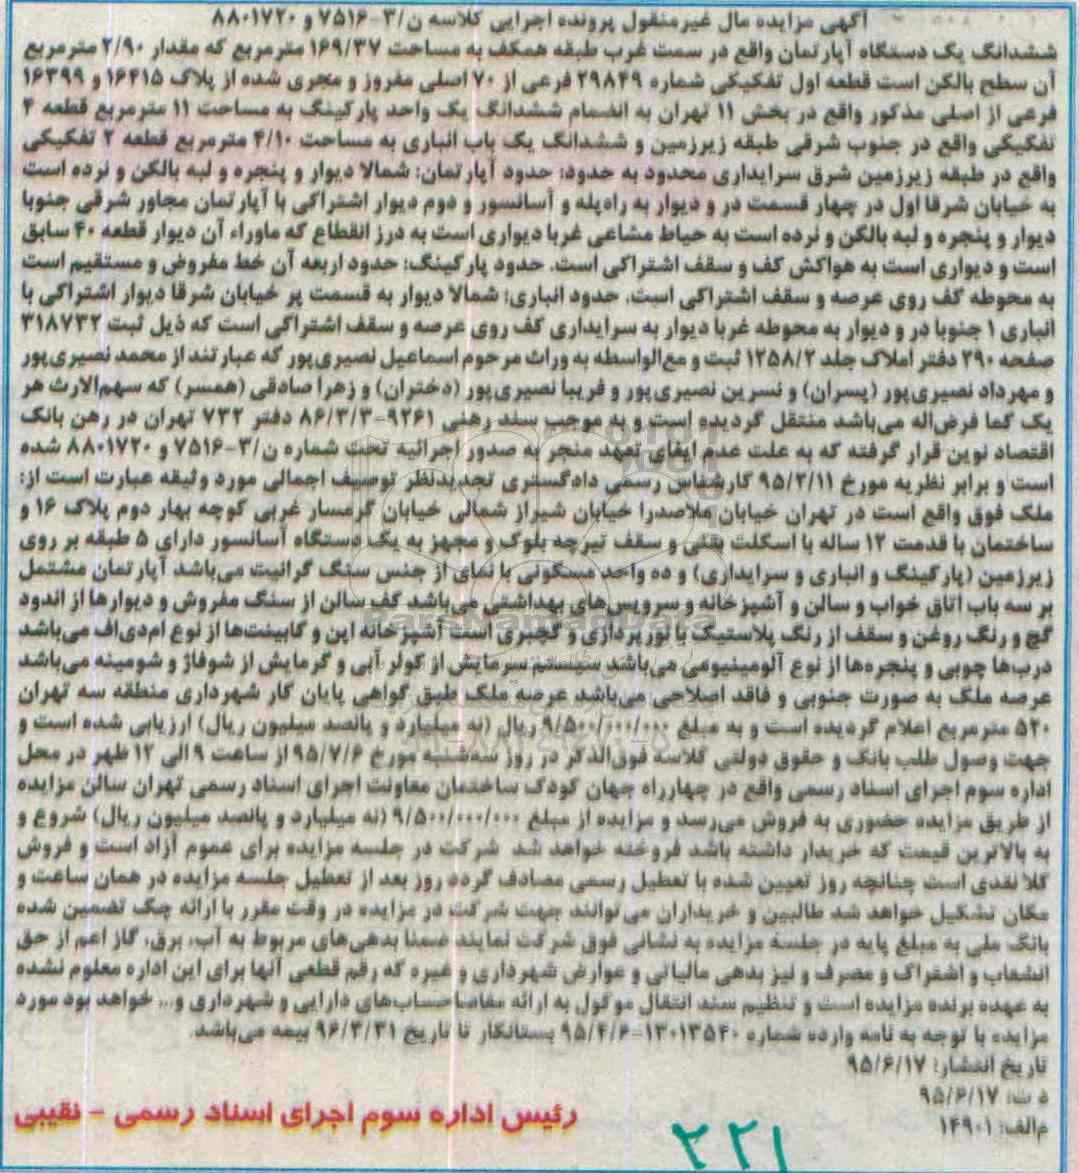 آگهی مزایده مال غیرمنقول پرونده اجرایی کلاسه ن/۳-۷۵۱۶ و ۸۸۰۱۷۲۰
ششدانگ یک دستگاه آپارتمان واقع در سمت غرب طبقه همکف به مساحت ۱۶۹/۳۷ مترمربع که مقدار ۲/۹۰ مترمربع
آن سطح بالکن است قطعه اول تفکیکی شماره ۲۹۸۴۹ فرعی از ۷۰ اصلی مفروز و مجزی شده از پلاک ۱۶۴۱۵ و ۱۶۳۹۹
فرعی از اصلی مذکور واقع در بخش ۱۱ تهران به انضمام ششدانگ یک واحد پارکینگ به مساحت ۱۱ مترمربع قطعه ۴
تفکیکی واقع در جنوب شرقی طبقه زیرزمین و ششدانگ یک باب انباری به مساحت ۴/۱۰ مترمربع قطعه ۲ تفکیکی
واقع در طبقه زیرزمین شرق سرایداری محدود به حدود: حدود آپارتمان: شمالا دیوار و پنجره و لبه بالکن و نرده است
به خیابان شرقا اول در چهار قسمت در و دیوار به راه‌پله و آسانسور و دوم دیوار اشتراکی با آپارتمان مجاور شرقی جنوبا
دیوار و پنجره و لبه بالکن و نرده است به حیاط مشاعی غربا دیواری است به درز انقطاع که ماوراء آن دیوار قطعه ۴۰ سابق
است و دیواری است به هواکش کف و سقف اشتراکی است. حدود پارکینگ: حدود اربعه آن خط مفروض و مستقیم است
به محوطه کف روی عرصه و سقف اشتراکی است. حدود انباری: شمالا دیوار به قسمت پر خیابان شرقا دیوار اشتراکی با
انباری ۱ جنوبا در و دیوار به محوطه غربا دیوار به سرایداری کف روی عرصه و سقف اشتراکی است که ذیل ثبت ۳۱۸۷۳۲
صفحه ۲۹۰ دفتر املاک جلد ۱۲۵۸/۲ ثبت و مع‌الواسطه به وراث مرحوم اسماعیل نصیری‌پور که عبارتند از محمد نصیری‌پور
و مهرداد نصیری‌پور (پسران) و نسرین نصیری‌پور و فریبا نصیری‌پور (دختران) و زهرا صادقی (همسر) که سهم‌الارث هر
یک کما فرض‌اله می‌باشد منتقل گردیده است و به موجب سند رهنی ۹۲۶۱-۸۶/۳/۳ دفتر ۷۳۲ تهران در رهن بانک
اقتصاد نوین قرار گرفته که به علت عدم ایفای تعهد منجر به صدور اجرائیه تحت شماره ن/۳-۷۵۱۶ و ۸۸۰۱۷۲۰ شده
است و برابر نظریه مورخ ۹۵/۲/۱۱ کارشناس رسمی دادگستری تجدیدنظر توصیف اجمالی مورد وثیقه عبارت است از:
ملک فوق واقع است در تهران خیابان ملاصدرا خیابان شیراز شمالی خیابان گرمسار غربی کوچه بهار دوم پلاک ۱۶ و
ساختمان با قدمت ۱۲ ساله با اسکلت بتنی و سقف تیرچه بلوک و مجهز به یک دستگاه آسانسور دارای ۵ طبقه بر روی
زیرزمین (پارکینگ و انباری و سرایداری) و ده واحد مسکونی با نمای از جنس سنگ گرانیت می‌باشد آپارتمان مشتمل
بر سه باب اتاق خواب و سالن و آشپزخانه و سرویس‌های بهداشتی می‌باشد کف سالن از سنگ مفروش و دیوارها از اندود
گچ و رنگ روغن و سقف از رنگ پلاستیک با نورپردازی و گچبری است آشپزخانه اپن و کابینت‌ها از نوع ام‌دی‌اف می‌باشد
درب‌ها چوبی و پنجره‌ها از نوع آلومینیومی می‌باشد سیستم سرمایش از کولر آبی و گرمایش از شوفاژ و شومینه می‌باشد
عرصه ملک به صورت جنوبی و فاقد اصلاحی می‌باشد عرصه ملک طبق گواهی پایان کار شهرداری منطقه سه تهران
۵۲۰ مترمربع اعلام گردیده است و به مبلغ ۹/۵۰۰/۰۰۰/۰۰۰ ریال (نه میلیارد و پانصد میلیون ریال) ارزیابی شده است و
جهت وصول طلب بانک و حقوق دولتی کلاسه فوق‌الذکر در روز سه‌شنبه مورخ ۹۵/۷/۶ از ساعت ۹ الی ۱۲ ظهر در محل
اداره سوم اجرای اسناد رسمی واقع در چهارراه جهان کودک ساختمان معاونت اجرای اسناد رسمی تهران سالن مزایده
از طریق مزایده حضوری به فروش می‌رسد و مزایده از مبلغ ۹/۵۰۰/۰۰۰/۰۰۰ (نه میلیارد و پانصد میلیون ریال) شروع و
به بالاترین قیمت که خریدار داشته باشد فروخته خواهد شد شرکت در جلسه مزایده برای عموم آزاد است و فروش
کلا نقدی است چنانچه روز تعیین شده با تعطیل رسمی مصادف گردد روز بعد از تعطیل جلسه مزایده در همان ساعت و
مکان تشکیل خواهد شد طالبین و خریداران می‌توانند جهت شرکت در مزایده در وقت مقرر با ارائه چک تضمین شده
بانک ملی به مبلغ پایه در جلسه مزایده به نشانی فوق شرکت نمایند ضمنا بدهی‌های مربوط به آب، برق، گاز اعم از حق
انشعاب و اشتراک و مصرف و نیز بدهی مالیاتی و عوارض شهرداری و غیره که رقم قطعی آنها برای این اداره معلوم نشده
به عهده برنده مزایده است و تنظیم سند انتقال موکول به ارائه مفاصاحساب‌های دارایی و شهرداری و... خواهد بود مورد
مزایده با توجه به نامه وارده شماره ۱۳۰۱۳۵۴۰-۹۵/۴/۶ بستانکار تا تاریخ ۹۶/۳/۳۱ بیمه می‌باشد.
تاریخ انتشار: ۹۵/۶/۱۷
د ث: ۹۵/۶/۱۷
م‌الف: ۱۴۹۰۱
رئیس اداره سوم اجرای اسناد رسمی - نقیبی
۲۲۱
ParsNamadData